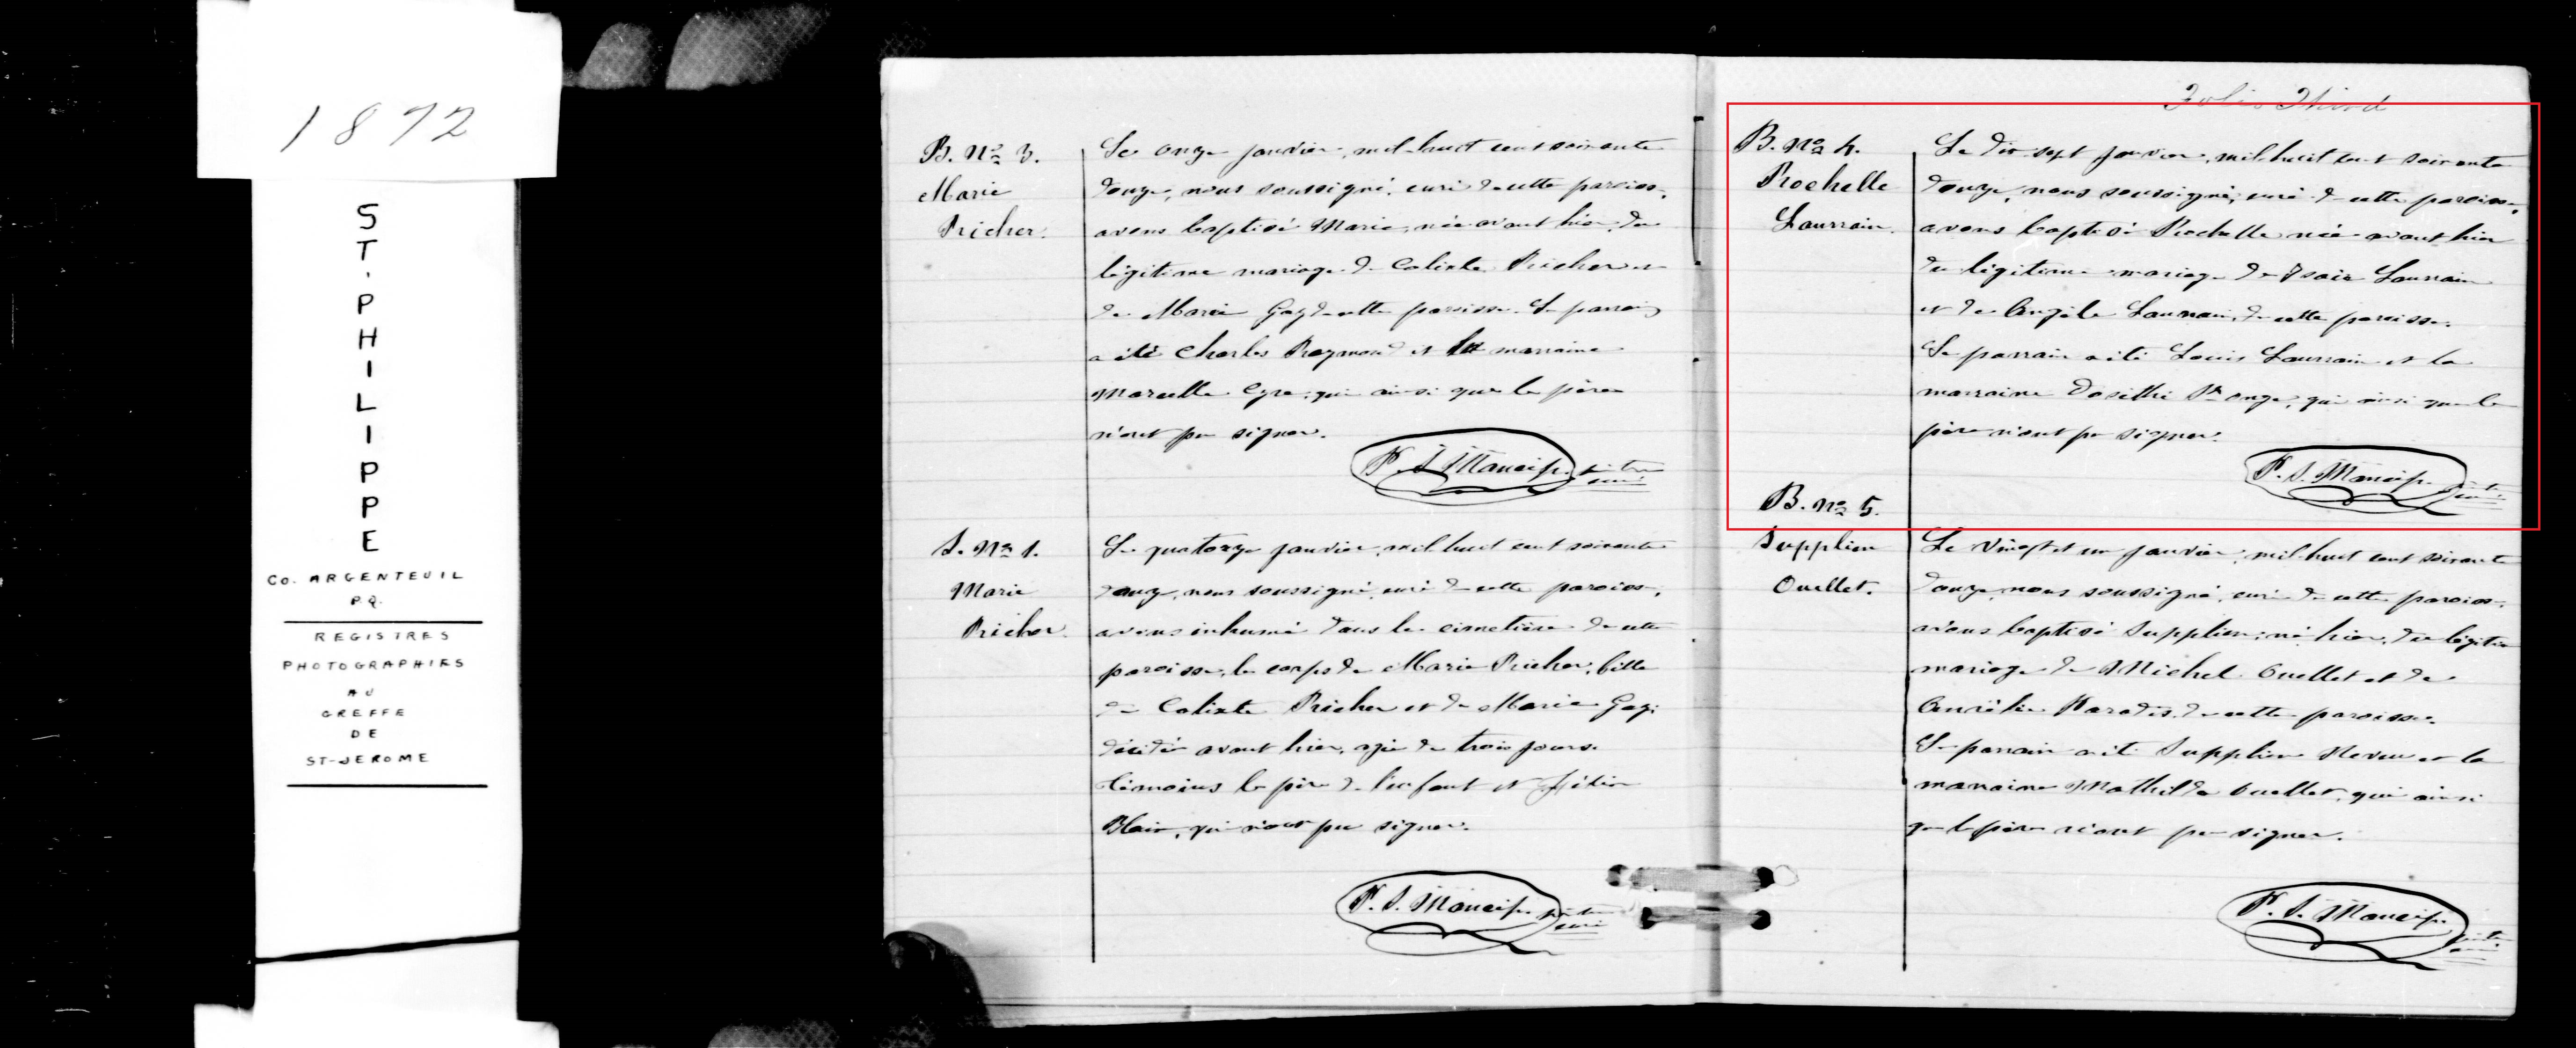 1872
S
T
.
P
H
I
L
I
P
P
E
CO. ARGENTEUIL
P.Q.
REGISTRES
PHOTOGRAPHIES
AU
GREFFE
DE
ST-JEROME
B. No 3.
Marie
Richer.
Le onze janvier, mil-huit cent soixante
douze, nous soussigné, curé de cette paroisse,
avons baptisé Marie, née avant hier, du
légitime mariage de Calixte Richer et
de Marie Gag de cette paroisse. Le parrain
a été Charles Raymond et la marraine
Marcelle Cyre, qui ainsi que le père
n'ont pu signer.
F. S. Mancip. ptre
curé
S. No 1.
Marie
Richer.
Le quatorze janvier, mil huit cent soixante
douze, nous soussigné, curé de cette paroisse,
avons inhumé dans le cimetière de cette
paroisse, le corps de Marie Richer, fille
de Calixte Richer et de Marie Gag,
décédée avant hier, agée de trois jours.
Témoins le père de l'enfant et
Blair, qui n'ont pu signer.
F. S. Mancip. ptre
curé
Folio Third
B. No 4.
Rochelle
Laurrain.
Le dix-sept janvier, mil huit cent soixante
douze, nous soussigné, curé de cette paroisse,
avons baptisé Rochelle née avant hier
du légitime mariage de Isaïe Laurrain
et de Angèle Laurrain, de cette paroisse.
Le parrain a été Louis Laurrain et la
marraine Dosithé St ange, qui ainsi que le
père n'ont pu signer.
F. S. Mancip. ptre
curé
B. No 5.
Supplien
Ouellet.
Le vingt et un janvier, mil huit cent soixante
douze, nous soussigné, curé de cette paroisse,
avons baptisé Supplien, né hier, du légitime
mariage de Michel Ouellet et de
Aurélie Paradis, de cette paroisse.
Le parrain a été Supplien Neveu et la
marraine Mathilde Ouellet, qui ainsi
que le père n'ont pu signer.
F. S. Mancip. ptre
curé